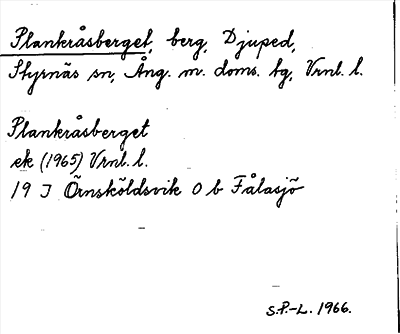 Plankråsberget, berg, Djuped,
Styrnäs sn, Ång. m. doms. tg, Vrnl. l.
Plankråsberget
ek (1965) Vrnl. l.
19 J Örnsköldsvik 0 b Fålasjö
S.P.-L. 1966.